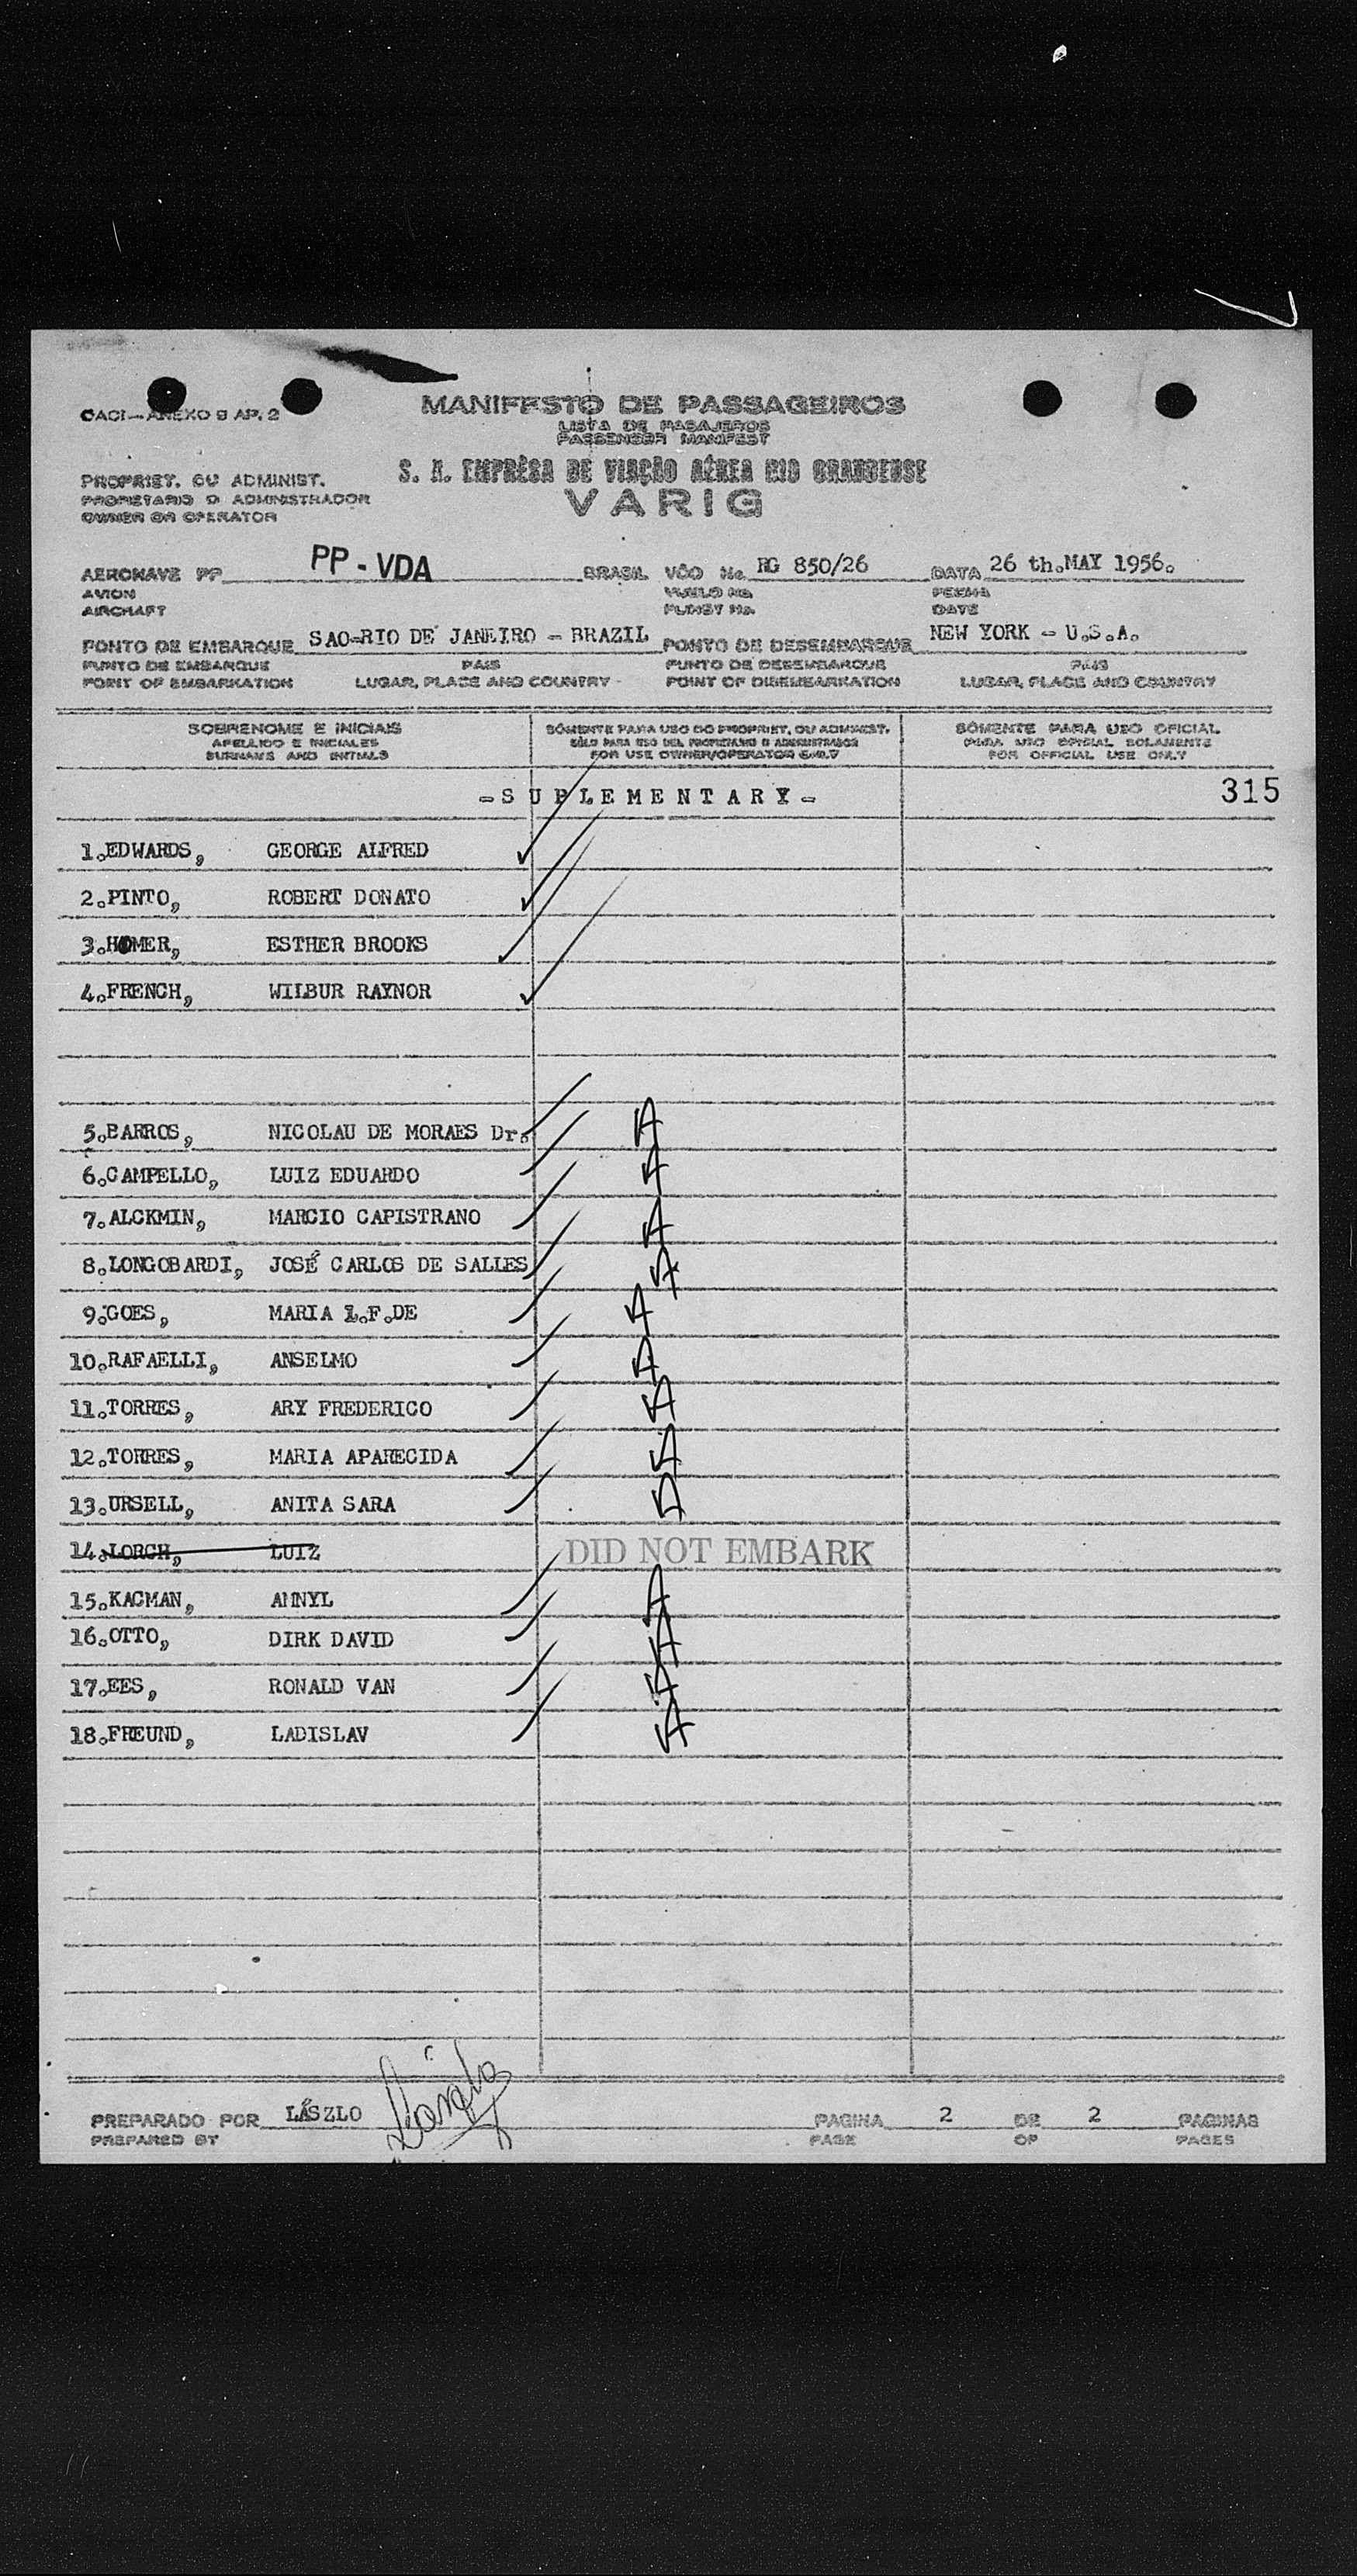 OACI — ANEXO 9 AP. 2
MANIFESTO DE PASSAGEIROS
LISTA DE PASAJEROS
PASSENGER MANIFEST
PROPRIET. OU ADMINIST.
PROPIETARIO O ADMINISTRADOR
OWNER OR OPERATOR
S. A. EMPRÊSA DE VIAÇÃO AÉREA RIO GRANDENSE
VARIG
AERONAVE PP PP - VDA BRASIL VÔO No. RG 850/26 DATA 26 th.MAY 1956.
AVION VUELO No. FECHA
AIRCRAFT FLIGHT No. DATE
PONTO DE EMBARQUE SAO-RIO DE JANEIRO - BRAZIL PONTO DE DESEMBARQUE NEW YORK - U.S.A.
PUNTO DE EMBARQUE PAIS PUNTO DE DESEMBARQUE PAIS
POINT OF EMBARKATION LUGAR, PLACE AND COUNTRY POINT OF DISEMBARKATION LUGAR, PLACE AND COUNTRY
SOBRENOME E INICIAIS SÓMENTE PARA USO DO PROPRIET. OU ADMINIST. SÓMENTE PARA USO OFICIAL
APELLIDO E INICIALES SÓLO PARA USO DEL PROPIETARIO O ADMINISTRADOR PARA USO OFICIAL SOLAMENTE
SURNAME AND INITIALS FOR USE OWNER/OPERATOR ONLY FOR OFFICIAL USE ONLY
-SUPLEMENTARY- 315
1.EDWARDS, GEORGE ALFRED
2.PINTO, ROBERT DONATO
3.HOMER, ESTHER BROOKS
4.FRENCH, WILBUR RAYNOR
5.BARROS, NICOLAU DE MORAES Dr. A
6.CAMPELLO, LUIZ EDUARDO A
7.ALCKMIN, MARCIO CAPISTRANO A
8.LONGOBARDI, JOSÉ CARLOS DE SALLES A
9.GOES, MARIA L.F.DE A
10.RAFAELLI, ANSELMO A
11.TORRES, ARY FREDERICO A
12.TORRES, MARIA APARECIDA A
13.URSELL, ANITA SARA A
14.LORCH, LUIZ DID NOT EMBARK
15.KACMAN, ANNYL A
16.OTTO, DIRK DAVID A
17.EES, RONALD VAN A
18.FREUND, LADISLAV A
PREPARADO POR LÁSZLO PAGINA 2 DE 2 PAGINAS
PREPARED BY PAGE OF PAGES